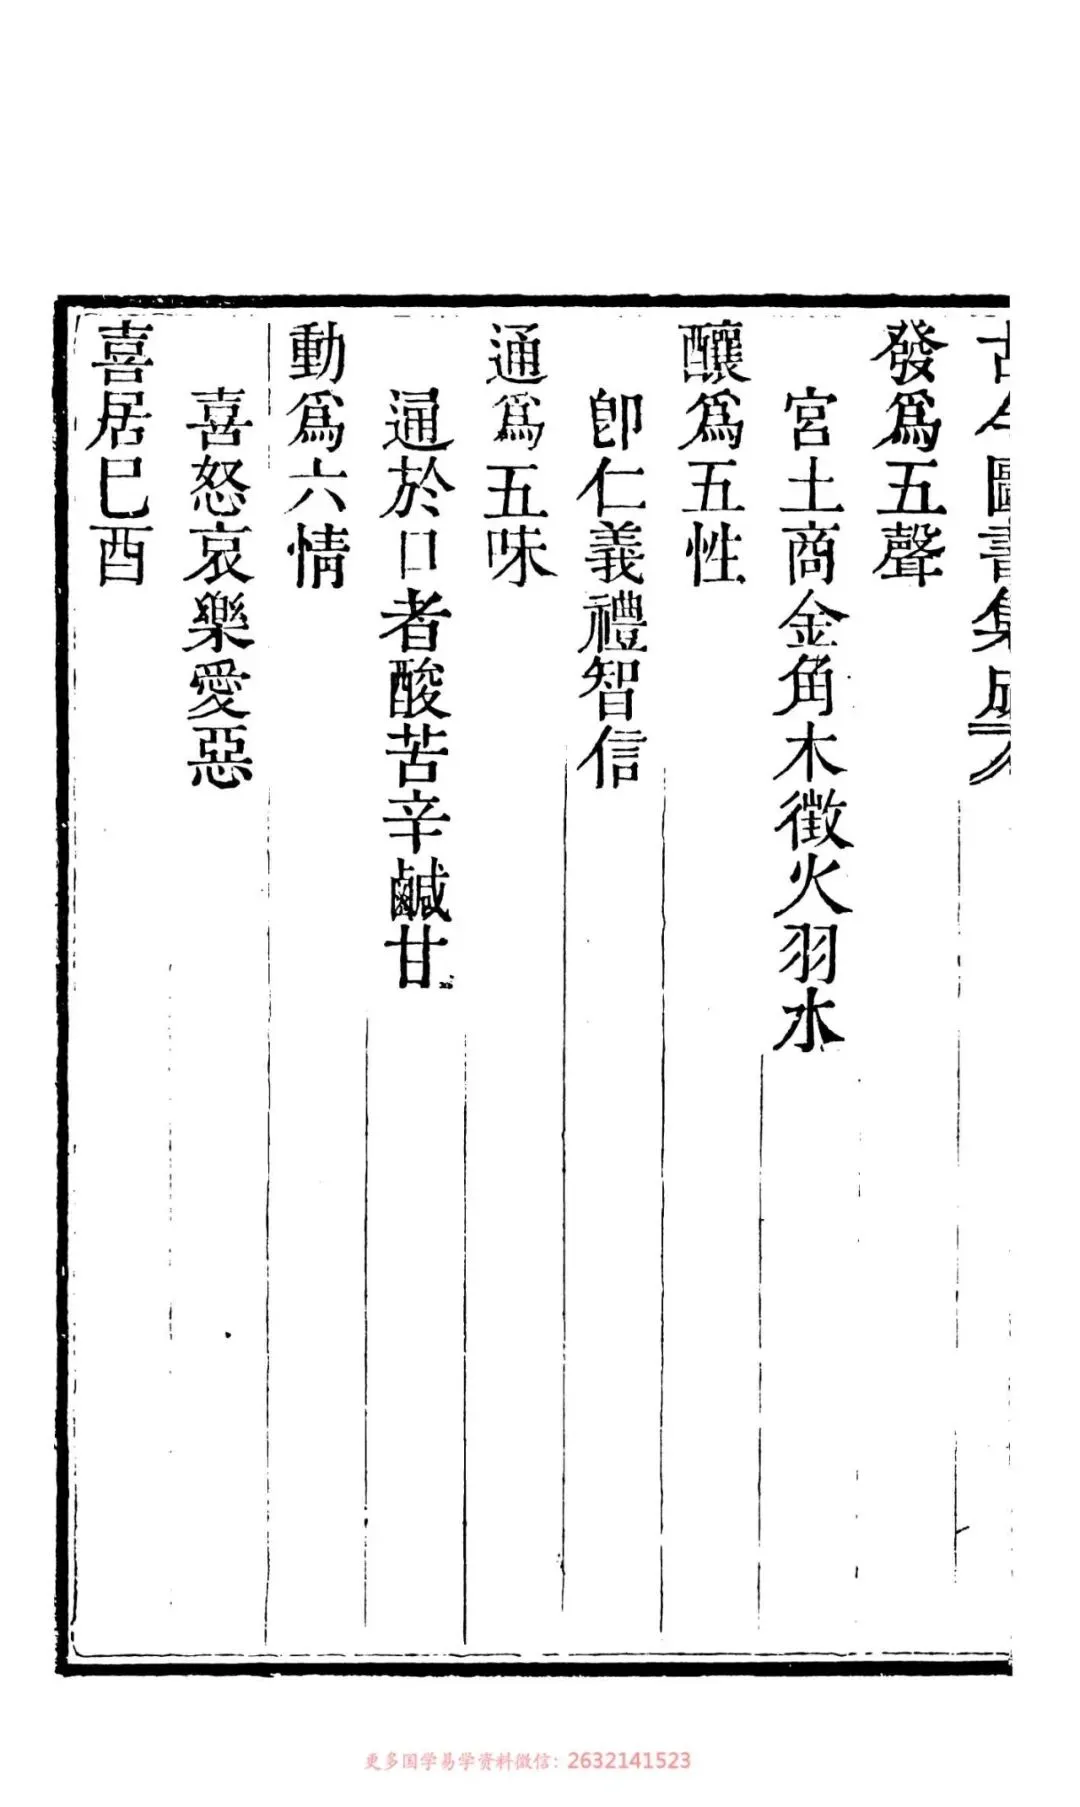 古今圖書集成
發爲五聲
宮土商金角木徵火羽水
釀爲五性
卽仁義禮智信
通爲五味
通於口者酸苦辛鹹甘
動爲六情
喜怒哀樂愛惡
喜居巳酉
更多国学易学资料微信：2632141523